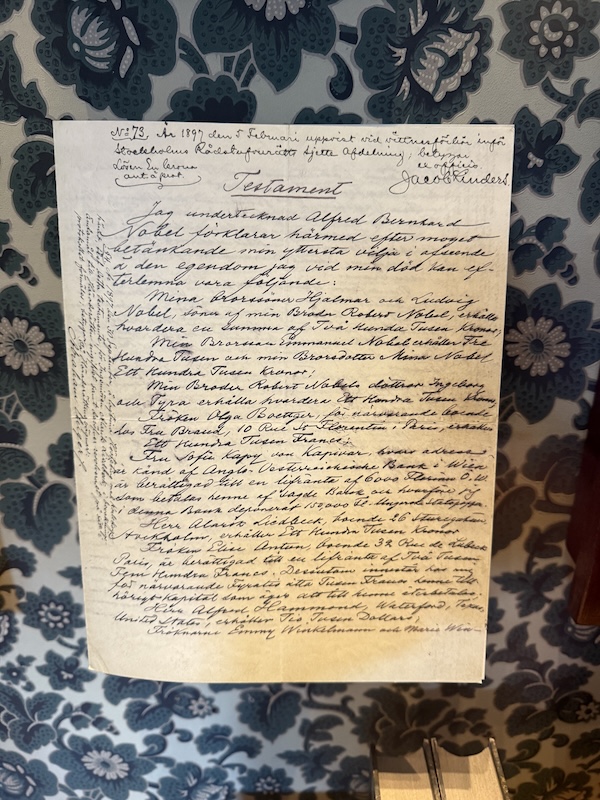 No 73. År 1897 den 5 Februari uppvist vid vittnesförhör inför
Stockholms Rådstufvurätts sjette Afdelning; betygar
ex officio
Jacob Kinders.
Testament
Jag undertecknad Alfred Bernhard
Nobel förklarar härmed efter moget
betänkande min yttersta vilja i afseende
å den egendom jag vid min död kan ef-
terlemna vara följande:
Mina Brorssöner Hjalmar och Ludvig
Nobel, söner af min Broder Robert Nobel, erhålla
hvardera en Summa af Två Hundra Tusen Kronor;
Min Brorson Emmanuel Nobel erhåller Tre
Hundra Tusen och min Brorsdotter Mina Nobel
Ett Hundra Tusen Kronor;
Min Broder Robert Nobels döttrar Ingeborg
och Tyra erhålla hvardera Ett Hundra Tusen Kronor;
Fröken Olga Boettger, för närvarande boende
hos Fru Brand, 10 Rue St Florentin i Paris, erhåller
Ett Hundra Tusen Francs;
Fru Sofie Kapy von Kapivar, hvars adress
är känd af Anglo-Oesterreichische Bank i Wien
är berättigad till en lifränta af 6000 Florins Ö.W.
som betalas henne af sagde Bank och hvarför jag
i denna Bank deponerat 150,000 Fl.
Herr Alarik Liedbeck, boende 26 Sturegatan,
Stockholm, erhåller Ett Hundra Tusen Kronor
Fröken Elise Antun, boende 32 Rue de Lubeck
Paris, är berättigad till en lifränta af Två Tusen
Fem Hundra Francs. Desutom innestår hos mig
för närvarande Fyratio åtta Tusen Francs henne till-
hörigt kapital som äger att till henne återbetalas;
Herr Alfred Hammond, Waterford, Texas,
United States, erhåller Tio Tusen Dollars;
Fröknarna Emmy Winkelmann och Marie Win-